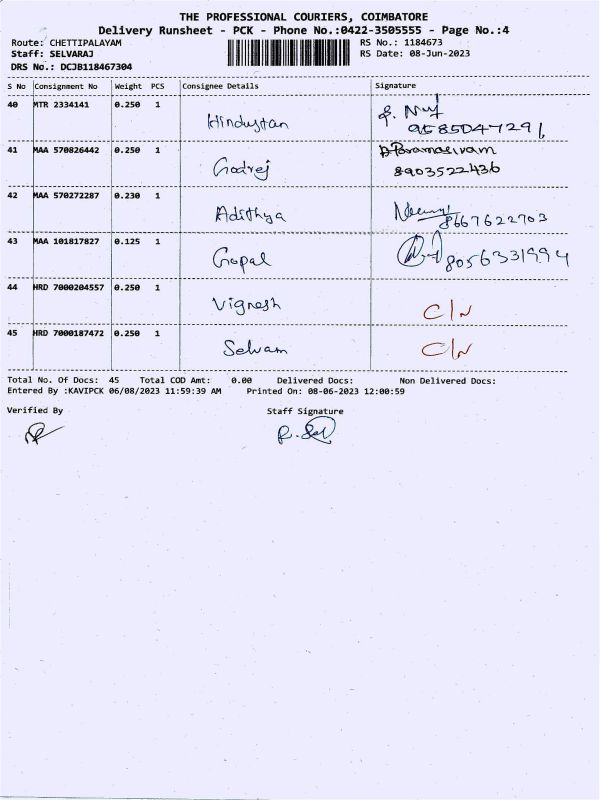 THE PROFESSIONAL COURIERS, COIMBATORE
Delivery Runsheet - PCK - Phone No.:0422-3505555 - Page No.:4
Route: CHETTIPALAYAM RS No.: 1184673
Staff: SELVARAJ RS Date: 08-Jun-2023
DRS No.: DCJB118467304
S No Consignment No Weight PCS Consignee Details Signature
40 MTR 2334141 0.250 1 Hindustan
9585047291
41 MAA 570826442 0.250 1 Godrej Paramasivam
8903522436
42 MAA 570272287 0.230 1 Adithya 8667622703
43 MAA 101817827 0.125 1 Gopal 8056331994
44 HRD 7000204557 0.250 1 Vignesh C/N
45 HRD 7000187472 0.250 1 Selvam C/N
Total No. Of Docs: 45 Total COD Amt: 0.00 Delivered Docs: Non Delivered Docs:
Entered By :KAVIPCK 06/08/2023 11:59:39 AM Printed On: 08-06-2023 12:00:59
Verified By Staff Signature